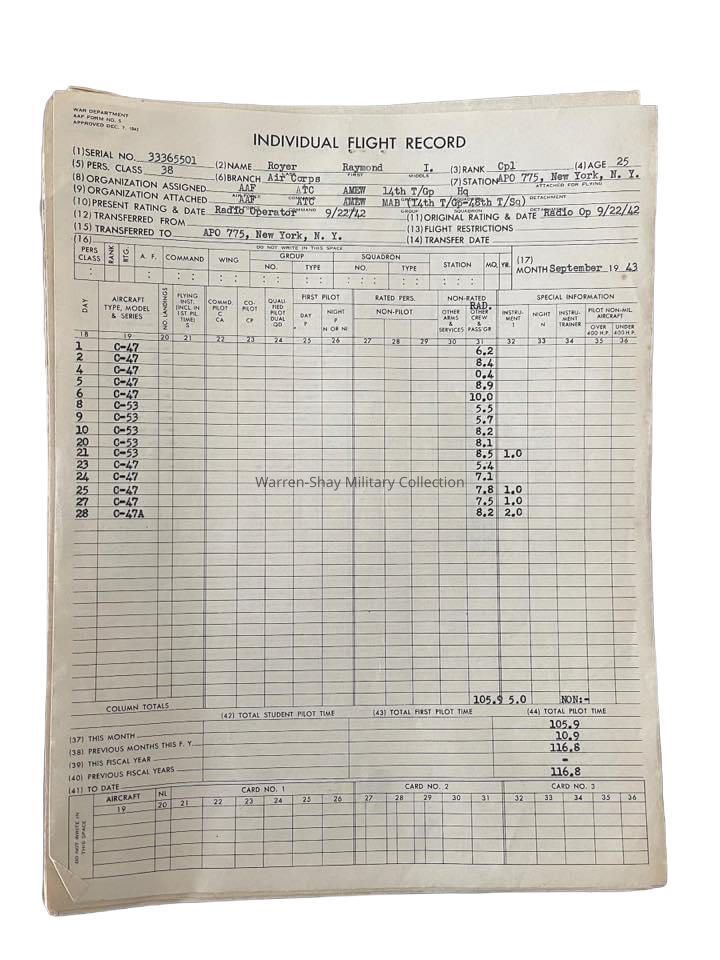 WAR DEPARTMENT
AAF FORM NO. 5
APPROVED DEC. 7, 1942
INDIVIDUAL FLIGHT RECORD
(1) SERIAL NO. 33365501 (2) NAME Royer Raymond I. (3) RANK Cpl (4) AGE 25
LAST FIRST MIDDLE
(5) PERS. CLASS 38 (6) BRANCH Air Corps (7) STATION APO 775, New York, N. Y.
(8) ORGANIZATION ASSIGNED AAF ATC AMEW 14th T/Gp Hq
ATTACHED FOR FLYING
(9) ORGANIZATION ATTACHED AAF ATC AMEW MAB (14th T/Gp-48th T/Sq)
AIR FORCE COMMAND GROUP SQUADRON DETACHMENT
(10) PRESENT RATING & DATE Radio Operator 9/22/42 (11) ORIGINAL RATING & DATE Radio Op 9/22/42
(12) TRANSFERRED FROM (13) FLIGHT RESTRICTIONS
(15) TRANSFERRED TO APO 775, New York, N. Y. (14) TRANSFER DATE
(16) DO NOT WRITE IN THIS SPACE
PERS CLASS RANK RTG. A. F. COMMAND WING GROUP NO. TYPE SQUADRON NO. TYPE STATION MO. YR. (17) MONTH September 19 43
DAY AIRCRAFT TYPE, MODEL & SERIES NO. LANDINGS FLYING INST. (INCL. IN 1ST PIL. TIME) S COMMD. PILOT C CA CO-PILOT CP QUALI-FIED PILOT DUAL QD FIRST PILOT DAY P NIGHT P N OR NI RATED PERS. NON-PILOT NON-RATED OTHER ARMS & SERVICES RAD. OTHER CREW & PASS'GR SPECIAL INFORMATION INSTRU-MENT I NIGHT N INSTRU-MENT TRAINER PILOT NON-MIL. AIRCRAFT OVER 400 H.P. UNDER 400 H.P.
18 19 20 21 22 23 24 25 26 27 28 29 30 31 32 33 34 35 36
1 C-47 6.2
2 C-47 8.4
4 C-47 0.4
5 C-47 8.9
6 C-47 10.0
8 C-53 5.5
9 C-53 5.7
10 C-53 8.2
20 C-53 8.1
21 C-53 8.5 1.0
23 C-47 5.4
24 C-47 7.1
25 C-47 7.8 1.0
27 C-47 7.5 1.0
28 C-47A 8.2 2.0
Warren-Shay Military Collection
COLUMN TOTALS 105.9 5.0 NON:-
(42) TOTAL STUDENT PILOT TIME (43) TOTAL FIRST PILOT TIME (44) TOTAL PILOT TIME
(37) THIS MONTH 105.9
(38) PREVIOUS MONTHS THIS F. Y. 10.9
(39) THIS FISCAL YEAR 116.8
(40) PREVIOUS FISCAL YEARS -
(41) TO DATE 116.8
DO NOT WRITE IN THIS SPACE
AIRCRAFT NL CARD NO. 1 CARD NO. 2 CARD NO. 3
19 20 21 22 23 24 25 26 27 28 29 30 31 32 33 34 35 36